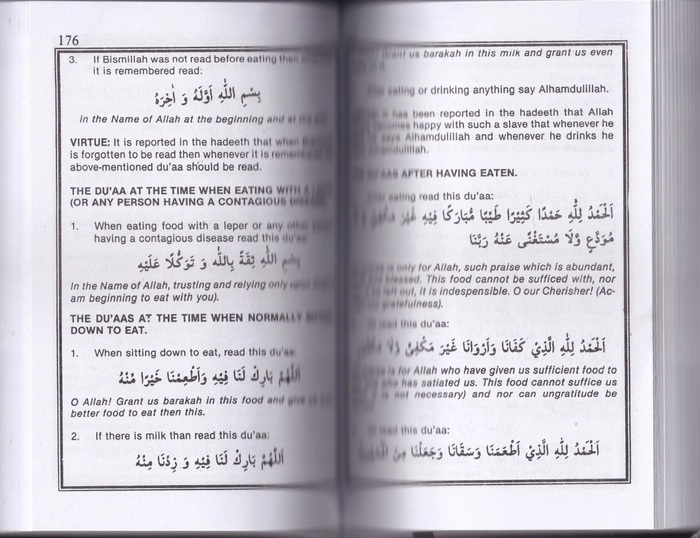 176
3. If Bismillah was not read before eating then
it is remembered read:
بِسْمِ اللّٰهِ اَوَّلَهُ وَ اٰخِرَهُ
In the Name of Allah at the beginning and at the
VIRTUE: It is reported in the hadeeth that when
is forgotten to be read then whenever it is
above-mentioned du'aa should be read.
THE DU'AA AT THE TIME WHEN EATING WITH A
(OR ANY PERSON HAVING A CONTAGIOUS
1. When eating food with a leper or any other
having a contagious disease read this du'aa
بِسْمِ اللّٰهِ ثِقَةً بِاللّٰهِ وَ تَوَكُّلًا عَلَيْهِ
In the Name of Allah, trusting and relying only
am beginning to eat with you).
THE DU'AAS AT THE TIME WHEN NORMALLY
DOWN TO EAT.
1. When sitting down to eat, read this du'aa
اَللّٰهُمَّ بَارِكْ لَنَا فِيْهِ وَاَطْعِمْنَا خَيْرًا مِّنْهُ
O Allah! Grant us barakah in this food and give
better food to eat then this.
2. If there is milk than read this du'aa:
اَللّٰهُمَّ بَارِكْ لَنَا فِيْهِ وَ زِدْنَا مِنْهُ
grant us barakah in this milk and grant us even
eating or drinking anything say Alhamdulillah.
It has been reported in the hadeeth that Allah
happy with such a slave that whenever he
says Alhamdulillah and whenever he drinks he
DU'AAS AFTER HAVING EATEN.
eating read this du'aa:
اَلْحَمْدُ لِلّٰهِ حَمْدًا كَثِيْرًا طَيِّبًا مُّبَارَكًا فِيْهِ غَيْرَ
مُوَدَّعٍ وَّلَا مُسْتَغْنًى عَنْهُ رَبَّنَا
is only for Allah, such praise which is abundant,
blessed. This food cannot be sufficed with, nor
left out, it is indespensible. O our Cherisher! (Ac-
gratefulness).
read this du'aa:
اَلْحَمْدُ لِلّٰهِ الَّذِيْ كَفَانَا وَاَرْوَانَا غَيْرَ مَكْفِيٍّ وَّلَا
is for Allah who have given us sufficient food to
who has satiated us. This food cannot suffice us
is not necessary) and nor can ungratitude be
read this du'aa:
اَلْحَمْدُ لِلّٰهِ الَّذِيْ اَطْعَمَنَا وَسَقَانَا وَجَعَلَنَا مِنَ